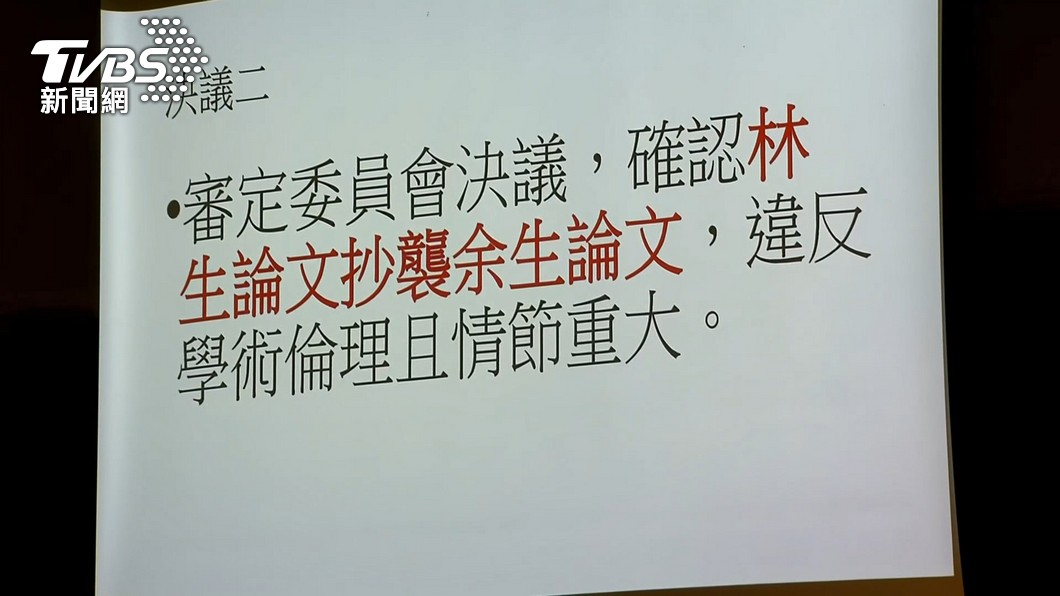 TVBS
新聞網
決議二
•審定委員會決議，確認林
生論文抄襲余生論文，違反
學術倫理且情節重大。